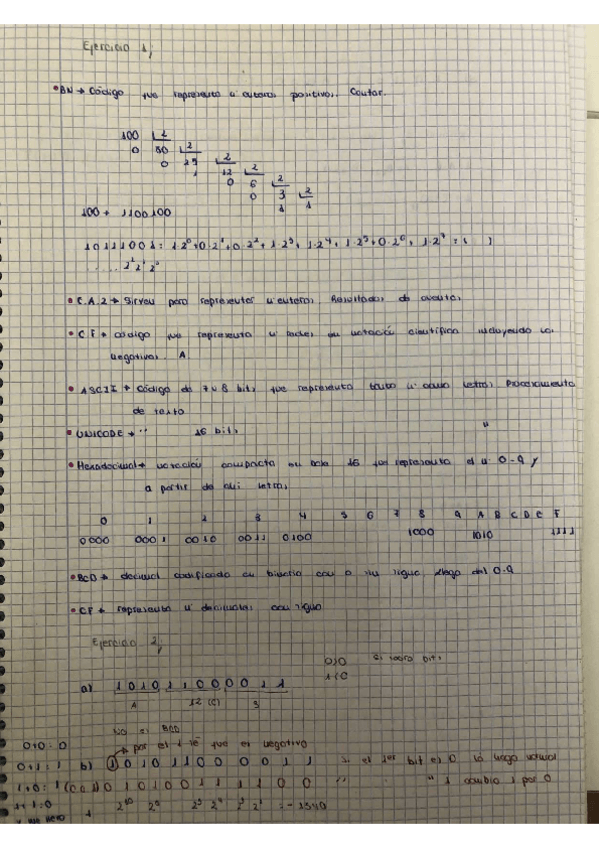 Ejercicio 1;
• BN → Código que representa nº enteros positivos. Contar.
100 2
0 50 2
0 25 2
1 12 2
0 6 2
0 3 2
1 1
100 → 1100100
10111001: 1·2⁰+0·2¹+0·2²+1·2³+1·2⁴+1·2⁵+0·2⁶+1·2⁷ =
..... 2² 2¹ 2⁰
• C.A.2 → Sirven para representar nº enteros. Resultados de
• C.F → código que representa nº en notación científica incluyendo los
negativos. A
• ASCII → Código de 7 u 8 bits que representa tanto nº como letras. Procesamiento
de texto
• UNICODE → '' 16 bits "
• Hexadecimal → notación compacta en base 16 que representa el nº 0-9 y
a partir de ahí letras
0 1 2 3 4 5 6 7 8 9 A B C D E F
0000 0001 0010 0011 0100 1000 1010 1111
• BCD → decimal codificado en binario con o sin signo. del 0-9
• CF → representa nº decimales con signo
Ejercicio 2;
a) 101011000011
A 12 (C) 3
No es BCD
por el 1 sé que es negativo
0+0:0
0+1:1 b) 1 0 1 0 1 1 0 0 0 0 1 1 si el 1er bit es 0 lo hago normal
1+0:1 (Ca1) 0 1 0 1 0 0 1 1 1 1 0 0 '' " 1 cambio 1 por 0
1+1:0
2¹⁰ 2⁸ 2⁵ 2⁴ 2³ 2² = -1340